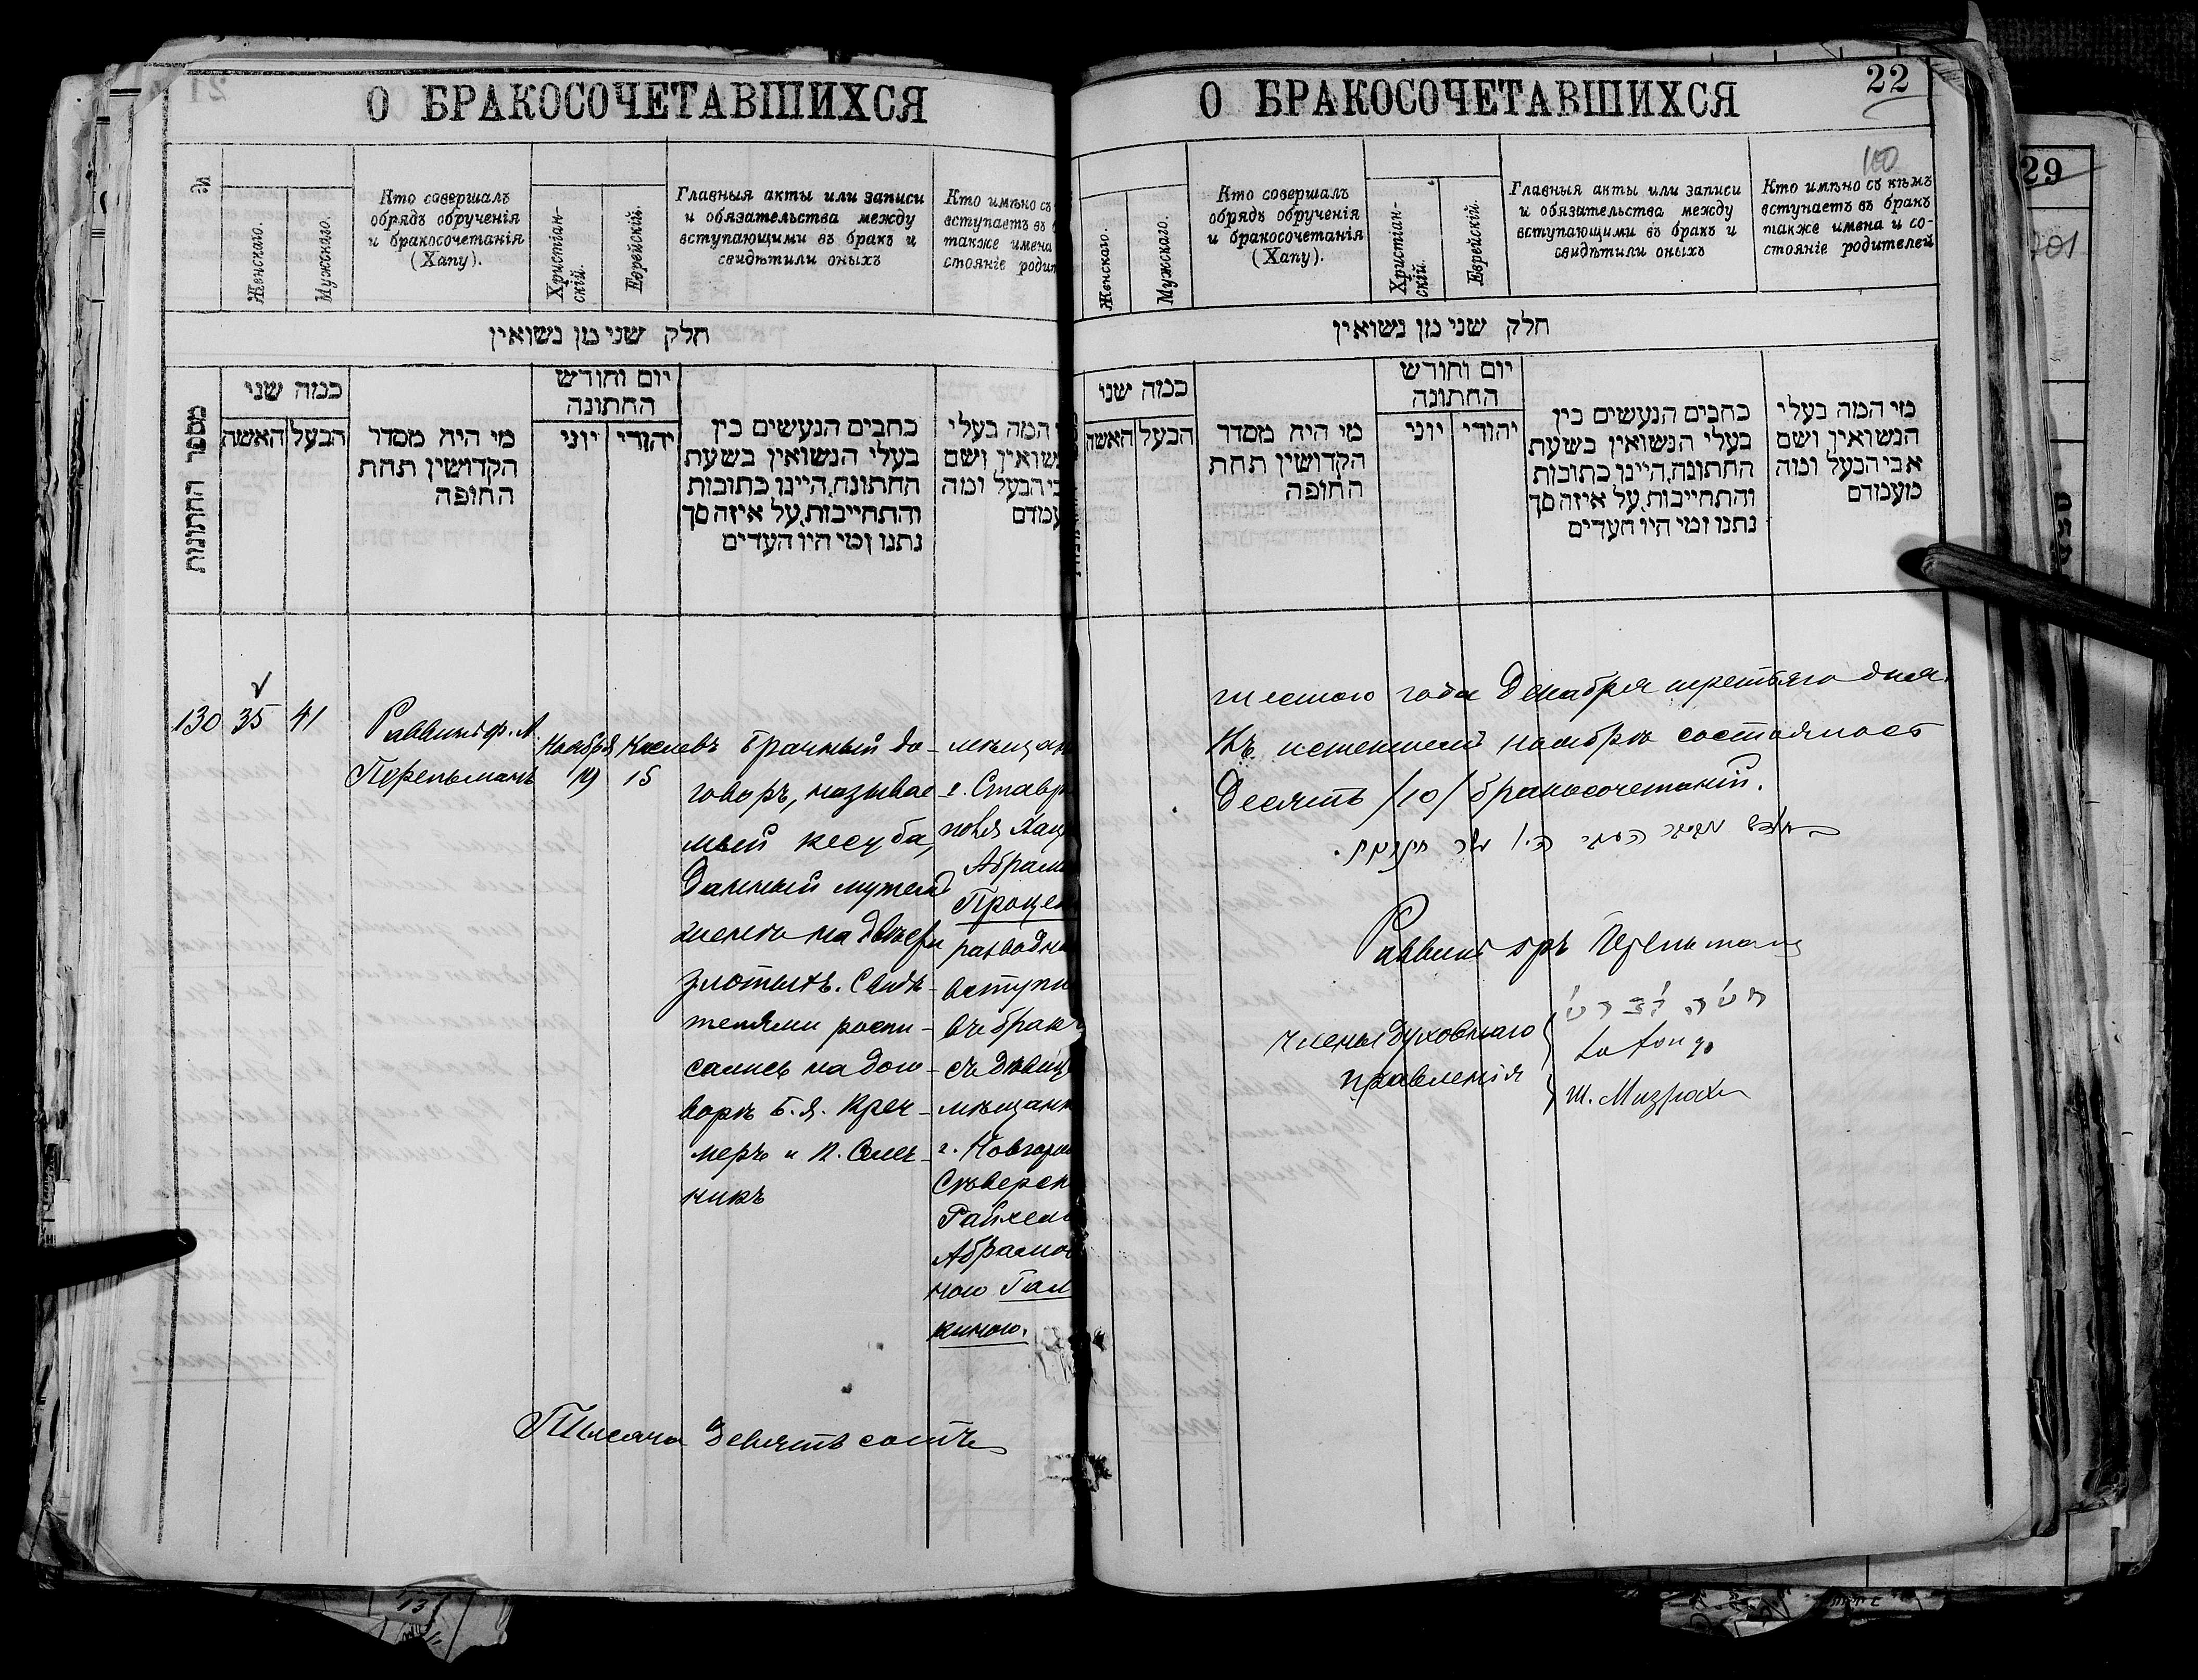 О БРАКОСОЧЕТАВШИХСЯ
№
Женскаго.
Мужскаго.
Кто совершалъ
обрядъ обрученія
и бракосочетанія
(Хапу).
Христіан-
скій.
Еврейскій.
Главныя акты или записи
и обязательства между
вступающими въ бракъ и
свидѣтили оныхъ
Кто имѣно съ
вступаетъ въ
также имена
стояніе
חלק שני מן נשואין
מספר החתונות
כמה שני
האשה
הבעל
מי היה מסדר
הקדושין תחת
החופה
יום וחודש
החתונה
יוני
יהודי
כתבים הנעשים בין
בעלי הנשואין בשעת
החתונה, היינו כתובות
והתחייבות, על איזה סך
נתנו ומי היו העדים
המה בעלי
ושם
הבעל ומה
130 35 41
Раввинъ
Перельманъ
Ноября
19
Кислевъ
15
Брачный до-
говоръ, называе
мый кесуба,
данный мужемъ
женѣ на двѣсти
злотыхъ. Свидѣ-
телями распи-
сались на дого-
ворѣ Б. Я. Креч-
меръ и
никъ
г.
Абрам
разводн
вступи
въ бракъ
съ дѣвиц
мѣщанк
г. Новгород
Сѣверск
Райхель
Абрамов
ною Гал
киною.
Тысяча девятьсотъ
О БРАКОСОЧЕТАВШИХСЯ
22
Женскаго.
Мужскаго.
Кто совершалъ
обрядъ обрученія
и бракосочетанія
(Хапу).
Христіан-
скій.
Еврейскій.
Главныя акты или записи
и обязательства между
вступающими въ бракъ и
свидѣтили оныхъ
Кто имѣно съ кѣмъ
вступаетъ въ бракъ
также имена и со-
стояніе родителей
חלק שני מן נשואין
כמה שני
האשה
הבעל
מי היה מסדר
הקדושין תחת
החופה
יום וחודש
החתונה
יוני
יהודי
כתבים הנעשים בין
בעלי הנשואין בשעת
החתונה, היינו כתובות
והתחייבות, על איזה סך
נתנו ומי היו העדים
מי המה בעלי
הנשואין ושם
אבי הבעל ומה
מעמדם
года Декабря третьяго дня.
Въ истекшемъ ноябрѣ состоялось
десять /10/ бракосочетаній.
Раввинъ Перельманъ
Члены духовнаго
правленія
Ш. Мизрахи
29